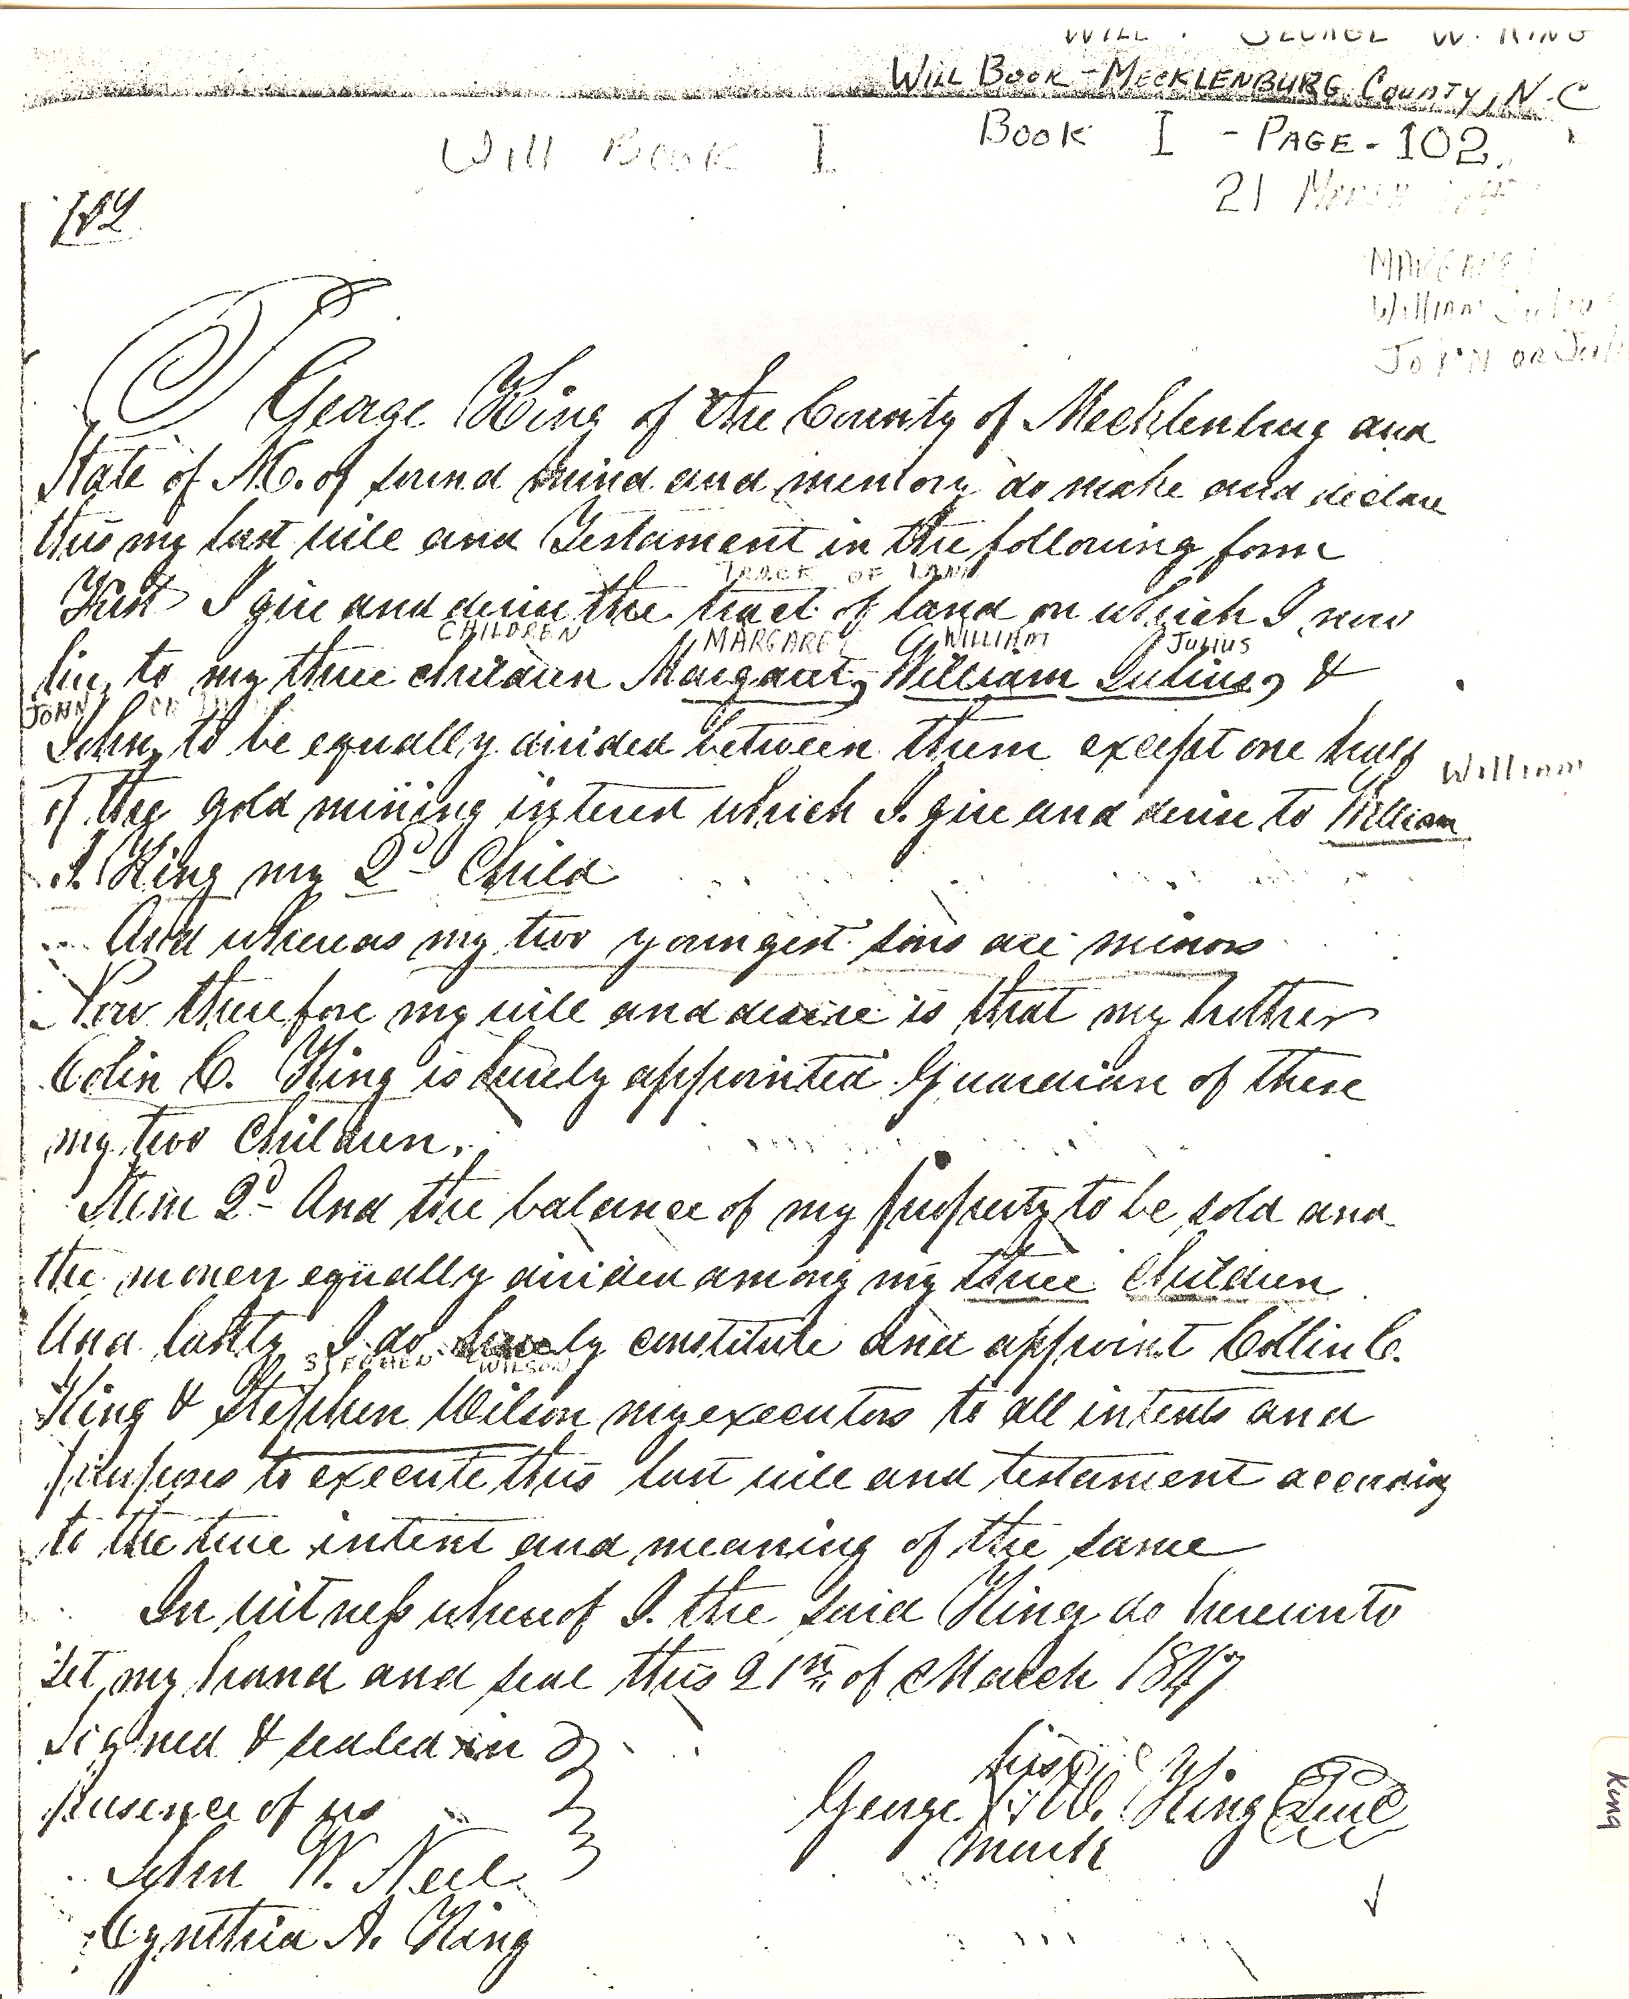 WILL. GEORGE W. KING
WILL BOOK - MECKLENBURG COUNTY, N.C
Will BOOK I
BOOK I - PAGE - 102
21 March
102
MARGARET
William Julius
JOHN OR
I George King of the County of Mecklenburg and
State of N.C. of sound mind and memory do make and declare
this my last will and Testament in the following form
TRACK OF LAND
First I give and devise the tract of land on which I now
CHILDREN MARGARET WILLIAM JULIUS
live to my three children Margaret, William Julius, &
JOHN OR
John, to be equally divided between them except one half
William
of the gold mining interest which I give and devise to William
J. King my 2d Child
And whereas my two youngest sons are minors
Now therefore my will and desire is that my brother
Colin C. King is hereby appointed Guardian of these
my two children.
Item 2d And the balance of my property to be sold and
the money equally divided among my three children
And lastly I do hereby constitute and appoint Collin C.
STEPHEN WILSON
King & Stephen Wilson my executors to all intents and
purposes to execute this last will and testament according
to the true intent and meaning of the same
In witness whereof I. the said King do hereunto
set my hand and seal this 21st of March 1847
Signed & sealed in
presence of us
his
George X W. King Seal
mark
John W. Neel
Cynthia A. King
King